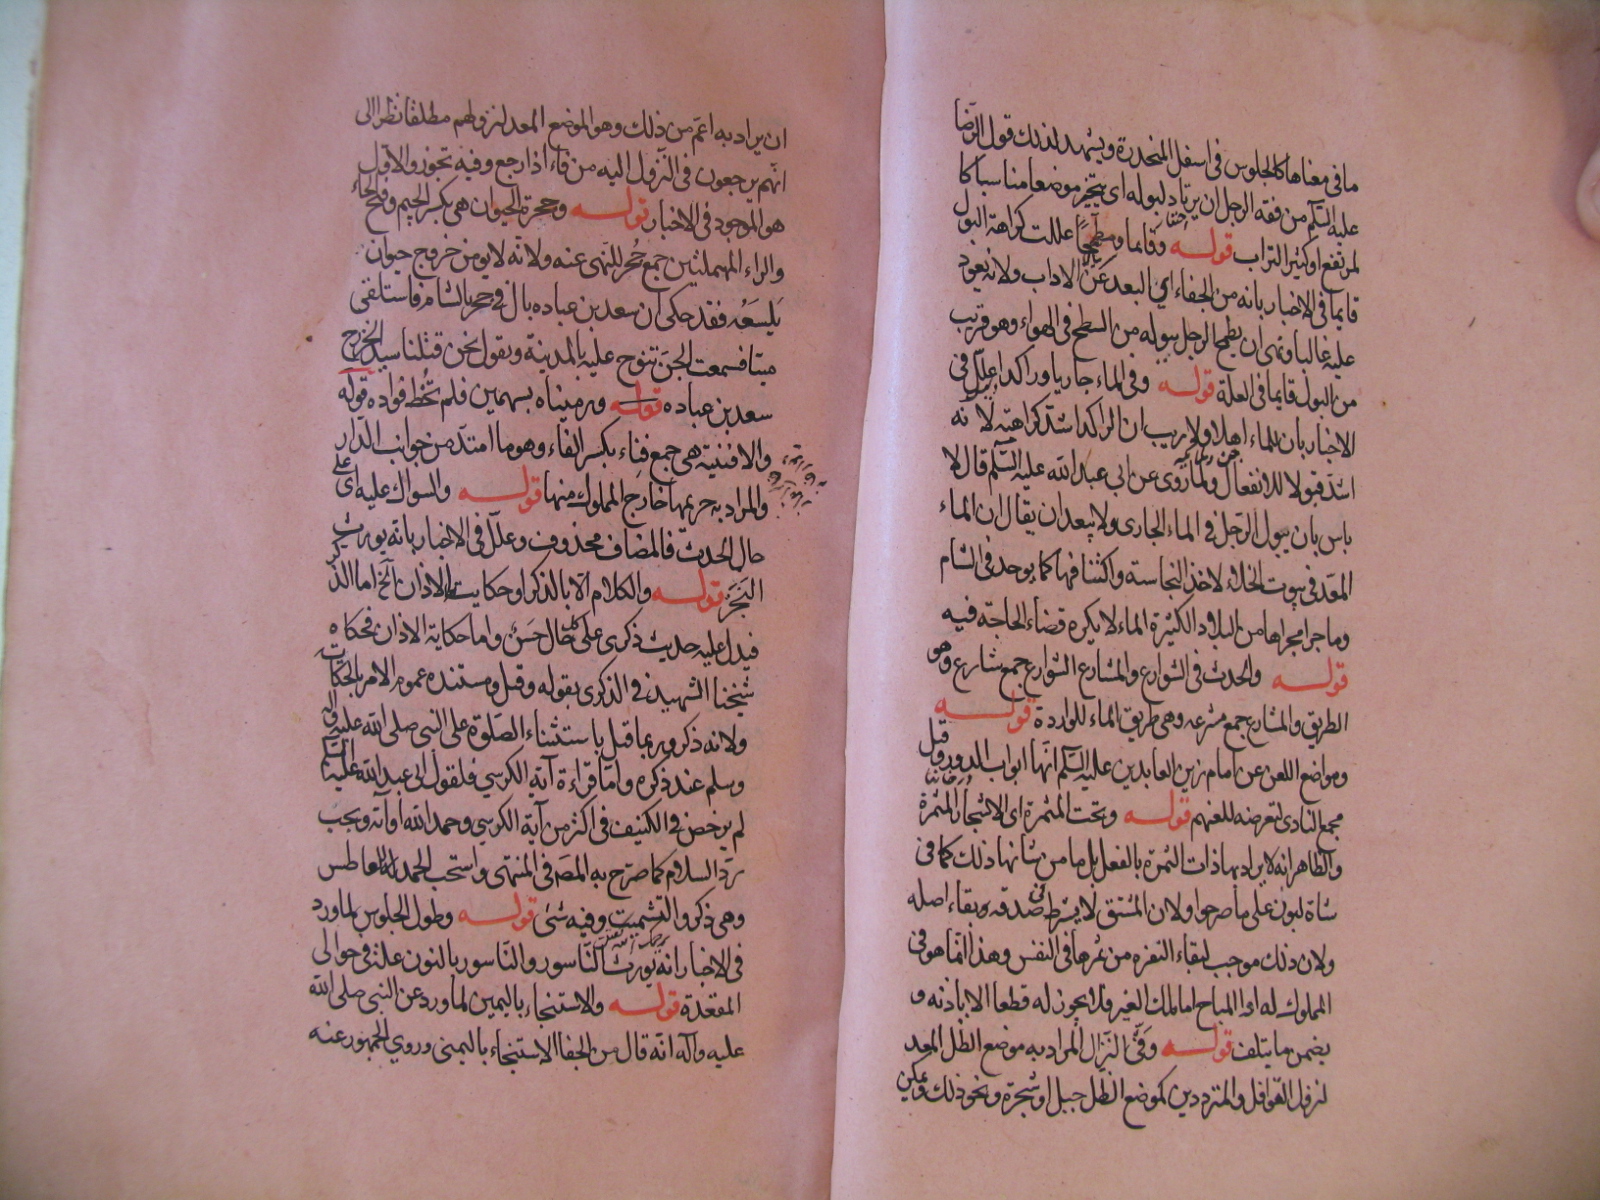 ما فى معناها كالجلوس فى اسفل المنحدرة ويشهد لذلك قول الرضا
عليه السلم من فقه الرجل ان يرتاد لبوله اى يتخير موضعا مناسبا كا
لمرتفع او كثير التراب قوله وقايما ومطمحا عللت كراهة البول
قايما فى الاخبار بانه من الجفاء اي البعد عن الاداب ولانه يعود
عليه غالبا ونهى ان يطمح الرجل ببوله من السطح فى الهواء وهو قريب
من البول قايما فى العلة قوله وفى الماء جاريا وراكدا علل فى
الاخبار بان للماء اهلا ولا ريب ان الراكد اشد كراهته لا نه
اشد قبولا للانفعال ولما روى عن ابى عبد الله عليه السلم قال لا
باس بان يبول الرجل في الماء الجارى ولا يبعد ان يقال ان الماء
المعد فى بيوت الخلاء لاخذ النجاسة واكتنافها كما يوجد فى الشام
وما جرا مجراها من البلاد الكثيرة الماء لا يكره قضاء الحاجة فيه
قوله والحدث فى الشوارع والمشارع الشوارع جمع شارع وهو
الطريق والمشارع جمع مشرعه وهى طريق الماء للواردة قوله
ومواضع اللعن عن امام زين العابدين عليه السلم انها ابواب الدور وقيل
مجمع النادى لتعرضه للعنهم قوله وتحت المثمرة اى الاشجار المثمرة
والظاهر انه لا يراد بها ذات الثمرة بالفعل بل ما من شانها ذلك كما فى
شاة لبون على ما صرحوا ولان المشتق لا يشترط فى صدقه بقاء اصله
ولان ذلك موجب لبقاء النفرة من ثمرها فى النفس وهذا انما هو فى
المملوك له او المباح اما ملك الغير فلا يجوز له قطعا الا باذنه و
يضمن ما يتلف قوله وفئ النزال المراد به موضع الظل المعد
لنزول القوافل والمترددين كموضع الظل جبل او شجرة ونحو ذلك ويمكن
ان يراد به اعم من ذلك وهو الموضع المعد لنزولهم مطلقا نظرا الى
انهم يرجعون فى النزول اليه من فاء اذا رجع وفيه تجوز والاول
هو الموجود فى الاخبار قوله وجحرة الحيوان هى بكسر الجيم وفتح الحاء
والراء المهملتين جمع جحر للنهى عنه ولانه لا يومن خروج حيوان
يلسعه فقد حكى ان سعد بن عباده بال في جحر بالشام فاستلقى
ميتا فسمعت الجن تنوح عليه بالمدينة وتقول نحن قتلنا سيد الخزرج
سعد بن عباده ورميناه بسهمين فلم تخط فواده قوله
والافنية هى جمع فناء بكسر الفاء وهو ما امتد من جوانب الدار
والمراد به حريمها خارج المملوك منها قوله والسواك عليه اى على
حال الحدث فالمضاف محذوف وعلل فى الاخبار بانه يورث
البخر قوله والكلام الا بالذكر او حكاية الاذان الخ اما الذكر
فيدل عليه حديث ذكرى على كل حال حسن واما حكاية الاذان فحكاه
شيخنا الشهيد في الذكرى بقوله وقيل ومستنده عموم الامر بالحكاية
ولانه ذكر وربما قيل باستثناء الصلوة على النبى صلى الله عليه واله
وسلم عند ذكره واما قراءة آية الكرسي فلقول ابى عبد الله عليه السلم
لم يرخص في الكنيف فى اكثر من آية الكرسي وحمد الله او آية ويجب
رد السلام كما صرح به المص فى المنتهى واستحب الحمد للعاطس
وهى ذكر والتشميت وفيه شئ قوله وطول الجلوس لما ورد
فى الاخبار انه يورث الناسور والناسور بالنون علة فى حوالى
المقعدة قوله والاستنجاء باليمين لما ورد عن النبى صلى الله
عليه وآله انه قال من الجفا الاستنجاء باليمنى وروي الجمهور عنه